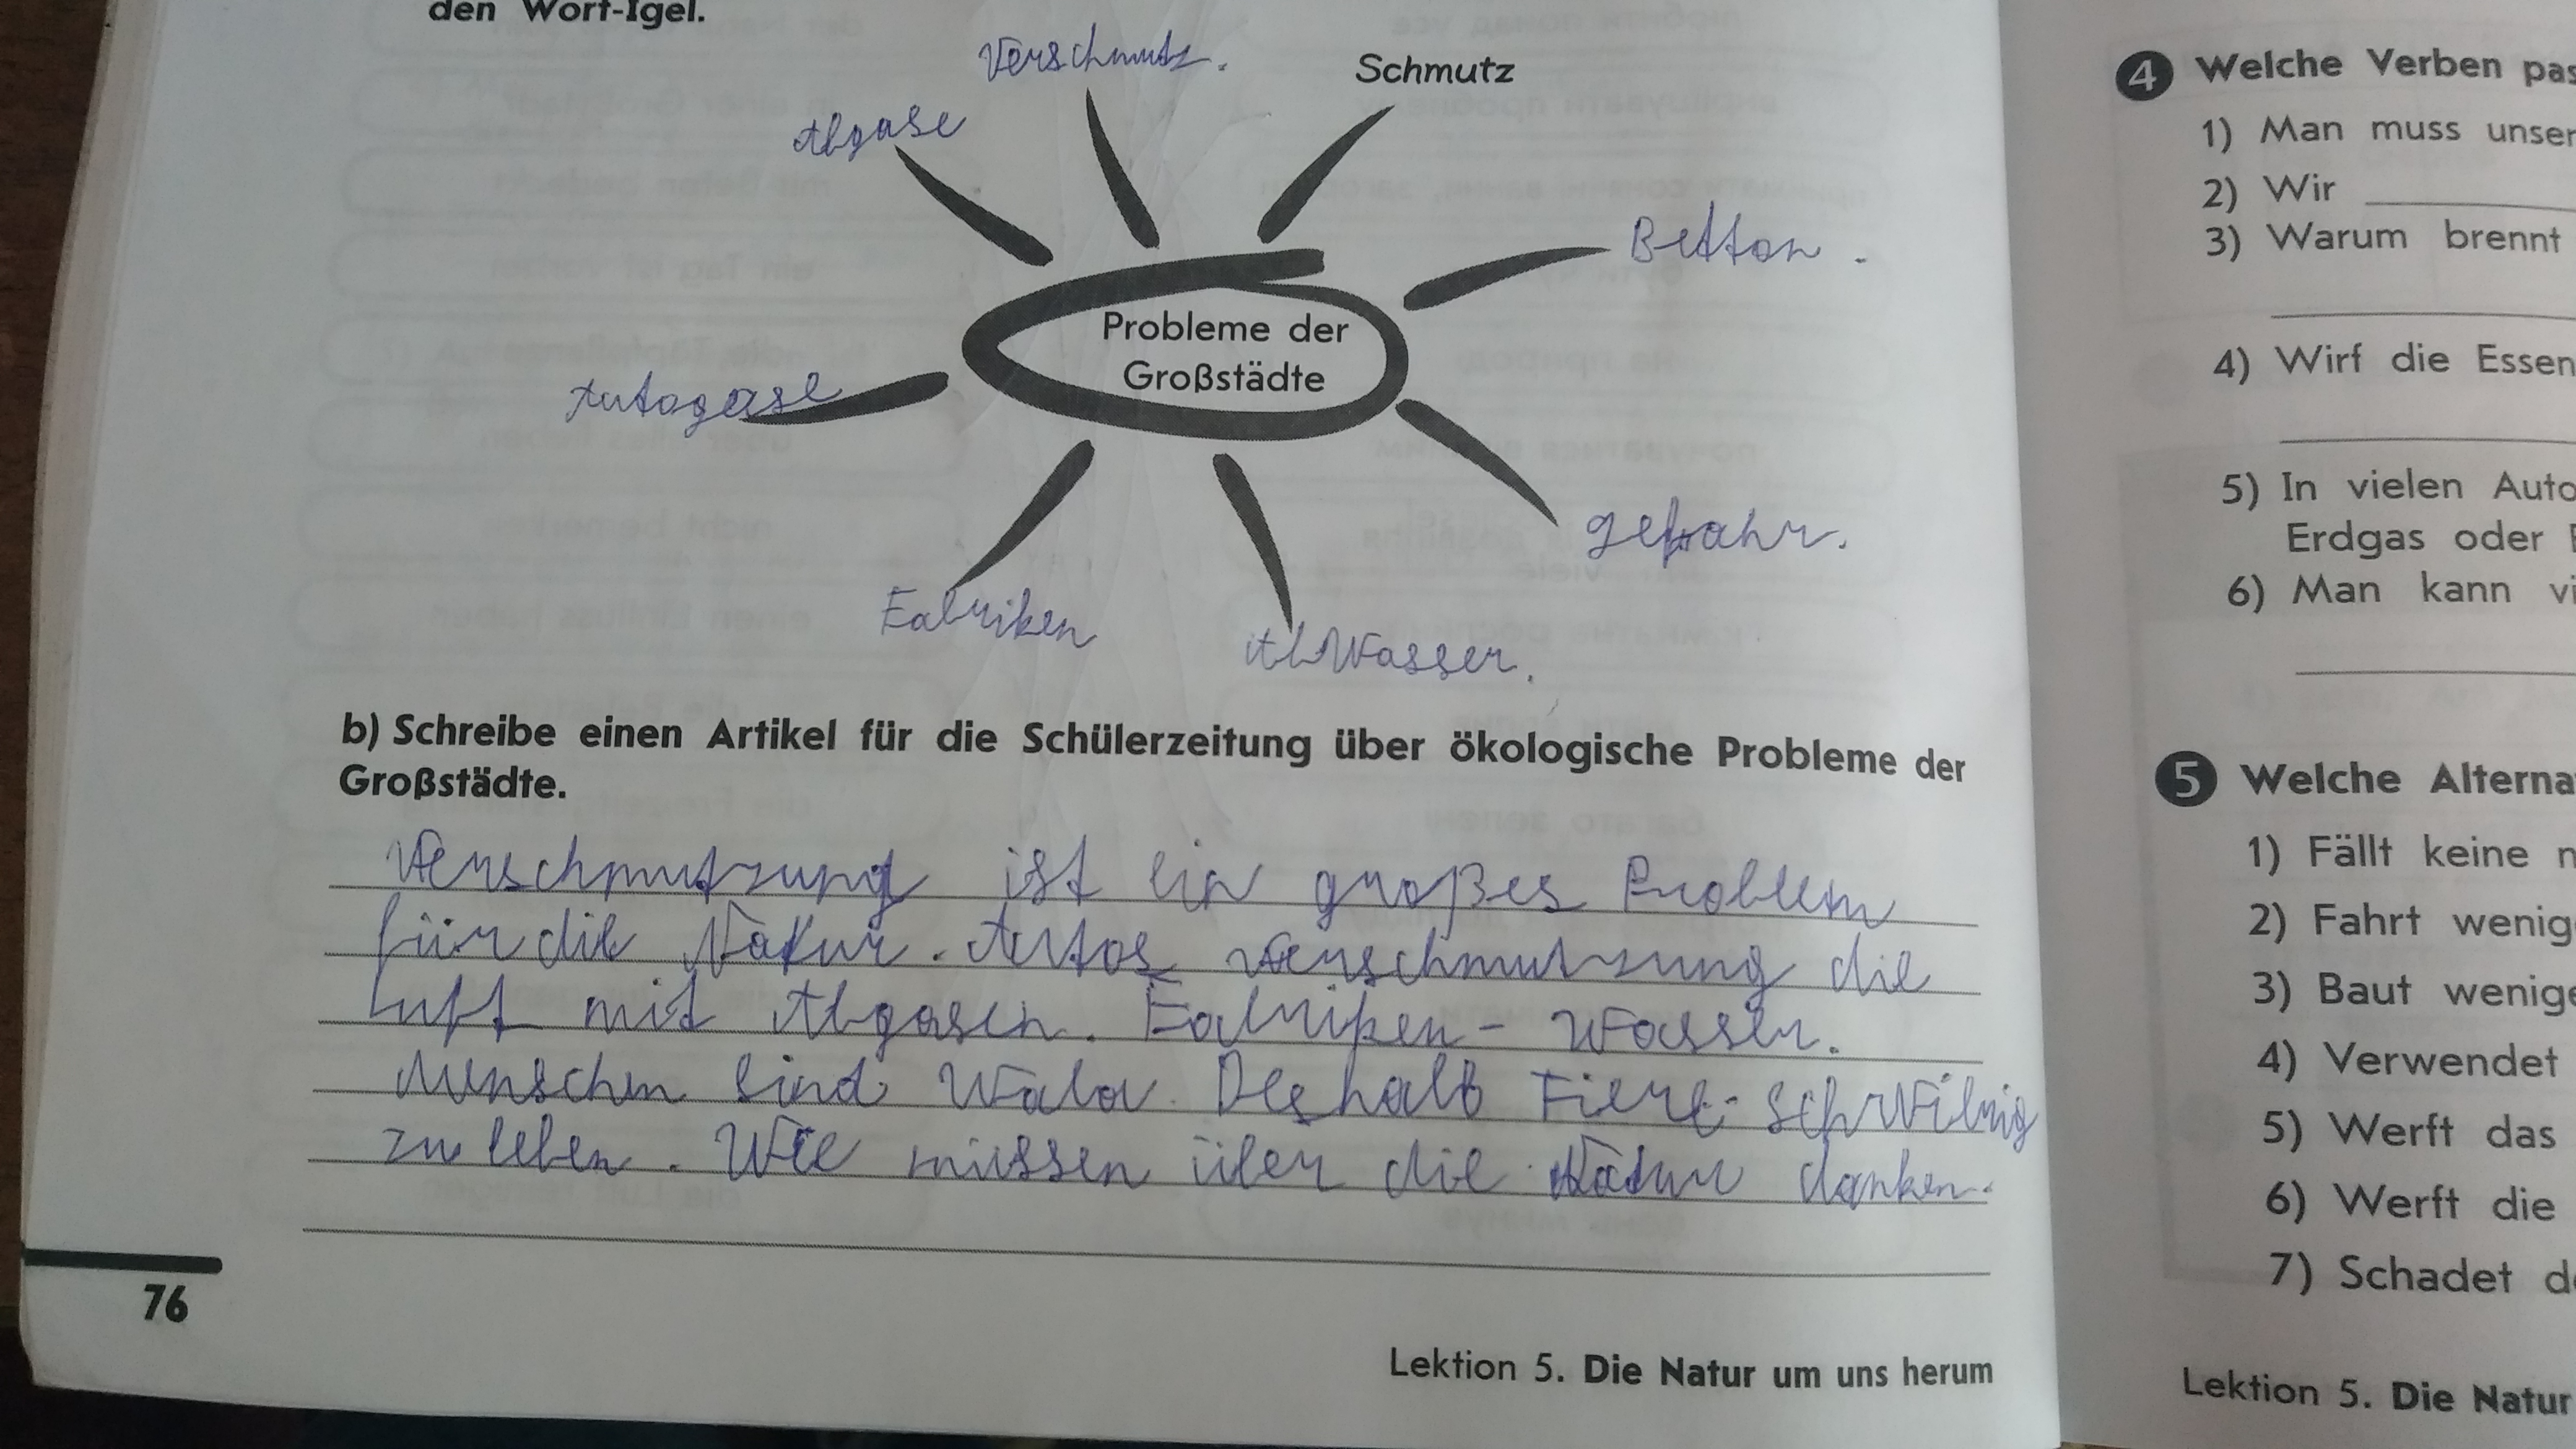 den Wort-Igel.
Verschmutz.
Schmutz
Abgase
Betton.
Probleme der
Großstädte
Autogase
gefrahr.
Fabriken
AbWasser.
b) Schreibe einen Artikel für die Schülerzeitung über ökologische Probleme der
Großstädte.
Verschmutzung ist ein großes Problem
für die Natur. Autos verschmutzung die
Luft mit Abgasen. Fabriken - Wasser.
Menschen sind Deshalb Tiere
zu leben. Wie müssen über die Natur danken.
76
Lektion 5. Die Natur um uns herum
4 Welche Verben pas
1) Man muss unser
2) Wir
3) Warum brennt
4) Wirf die Essen
5) In vielen Auto
Erdgas oder
6) Man kann vi
5 Welche Alterna
1) Fällt keine
2) Fahrt wenig
3) Baut wenige
4) Verwendet
5) Werft das
6) Werft die
7) Schadet
Lektion 5. Die Natur